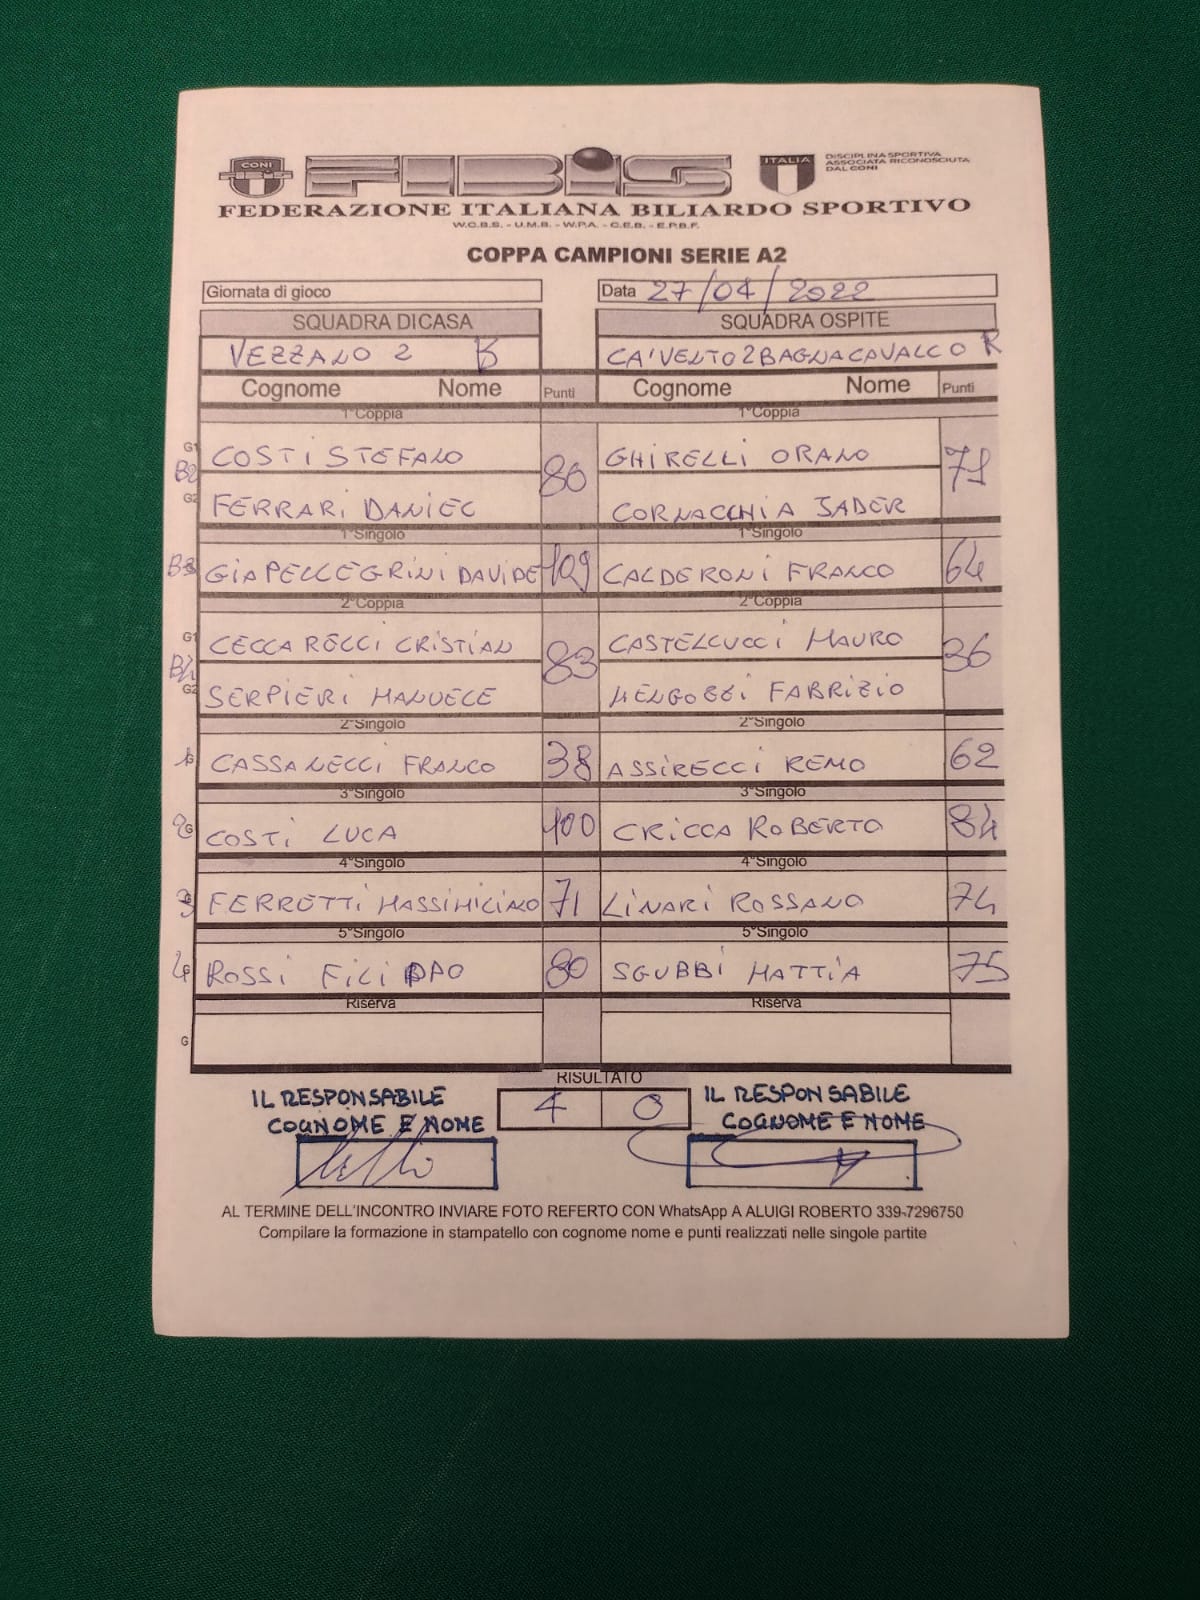 CONI
FIBiS
ITALIA
DISCIPLINA SPORTIVA
ASSOCIATA RICONOSCIUTA
DAL CONI
FEDERAZIONE ITALIANA BILIARDO SPORTIVO
W.C.B.S. - U.M.B. - W.P.A. - C.E.B. - E.P.B.F.
COPPA CAMPIONI SERIE A2
Giornata di gioco Data 27/04/2022
SQUADRA DI CASA SQUADRA OSPITE
VEZZANO 2 B CA'VENTO2BAGNACAVALLO R
Cognome Nome Punti Cognome Nome Punti
1°Coppia 1°Coppia
G1 COSTI STEFANO 80 GHIRELLI ORANO 71
B2
G2 FERRARI DANIEL CORNACCHIA JADER
1°Singolo 1°Singolo
B3 GIAPELLEGRINI DAVIDE 109 CALDERONI FRANCO 64
2°Coppia 2°Coppia
G1 CECCARELLI CRISTIAN 83 CASTELLUCCI MAURO 36
B4
G2 SERPIERI MANUELE MENGOZZI FABRIZIO
2°Singolo 2°Singolo
1 G CASSANELLI FRANCO 38 ASSIRELLI REMO 62
3°Singolo 3°Singolo
2 G COSTI LUCA 100 CRICCA ROBERTO 84
4°Singolo 4°Singolo
3 G FERRETTI MASSIMILIANO 71 LINARI ROSSANO 74
5°Singolo 5°Singolo
4 G ROSSI FILIPPO 80 SGUBBI MATTIA 75
Riserva Riserva
G
RISULTATO
IL RESPONSABILE 4 0 IL RESPONSABILE
COGNOME E NOME COGNOME E NOME
AL TERMINE DELL'INCONTRO INVIARE FOTO REFERTO CON WhatsApp A ALUIGI ROBERTO 339-7296750
Compilare la formazione in stampatello con cognome nome e punti realizzati nelle singole partite